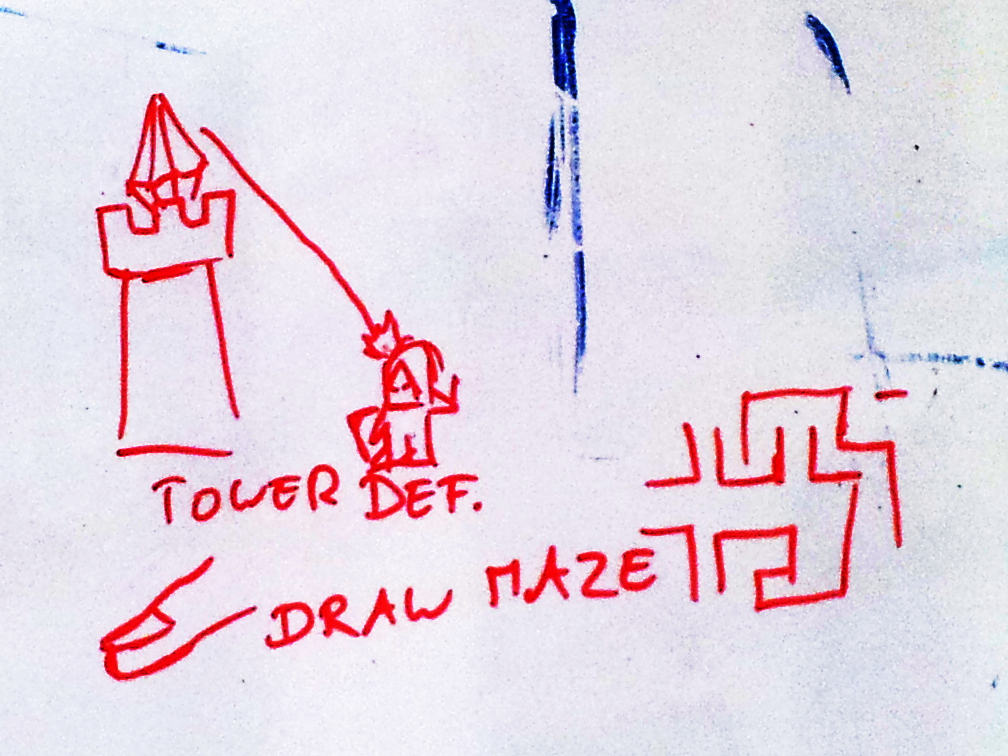 TOWER DEF.
DRAW MAZE